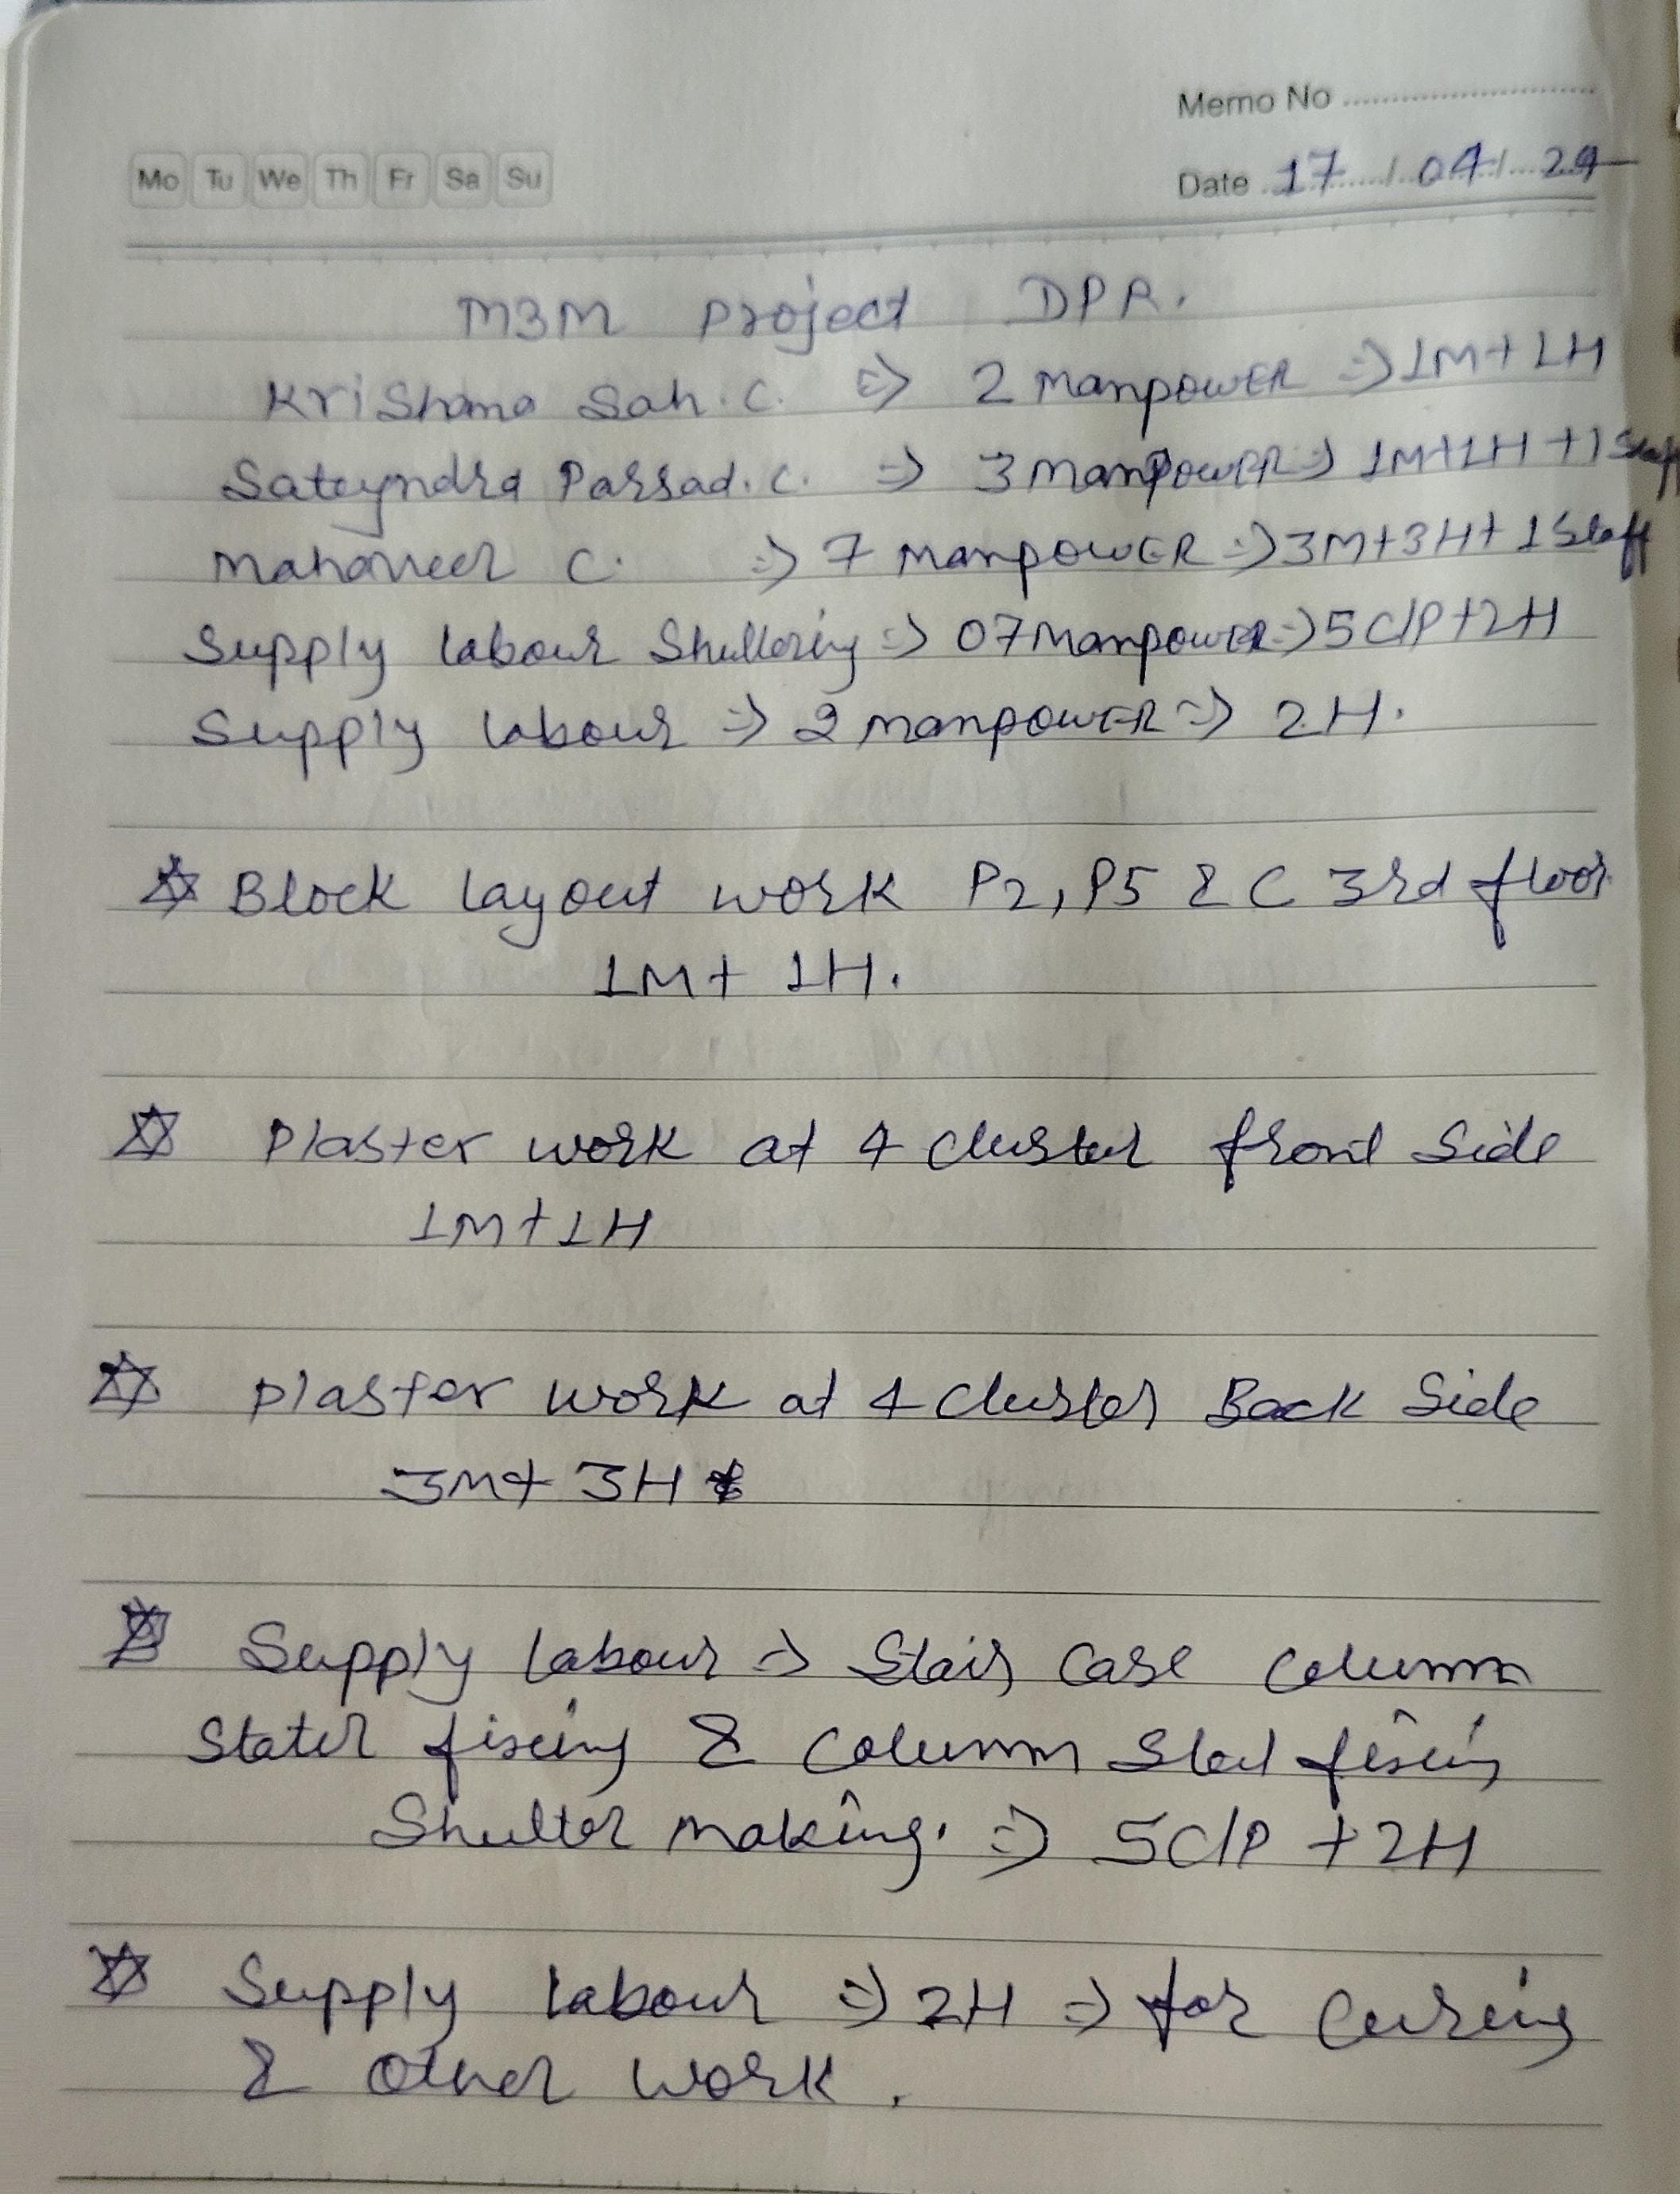 Memo No
Mo Tu We Th Fr Sa Su
Date 17 / 04 / 24
M3M Project DPR.
Krishana Sah. C. => 2 ManpowER => 1M+1H
Sateyndra Parsad. C. => 3 ManpowER => 1M+1H+1 Staff
Mahaveer C. => 7 ManpowER => 3M+3H+1 Staff
Supply labour Shuttering => 07 ManpowER => 5 C/P+2H
Supply labour => 2 manpowER => 2H.
☆ Block layout work P2, P5 & C 3rd floor
1M+ 1H.
☆ Plaster work at 4 cluster front Side
1M+1H
☆ plaster work at 4 cluster Back Side
3M+ 3H
☆ Supply labour => Stair Case Column
Stater fixing & Column Steel fixing
Shutter making. => 5C/P +2H
☆ Supply labour => 2H => for Curing
& other work.